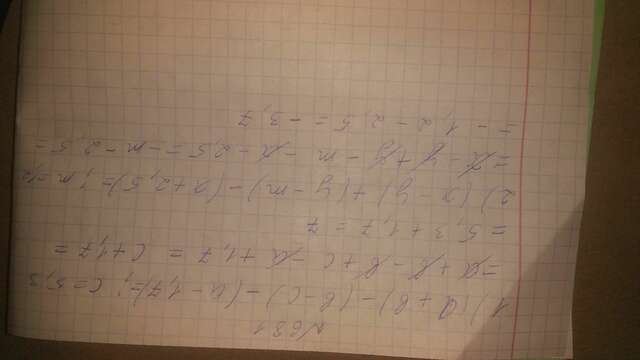 №681
1) (а + в) - (в - с) - (а - 1,7) = ; с = 5,3
= а + в - в + с - а + 1,7 = с + 1,7 =
= 5,3 + 1,7 = 7
2) (х - у) + (у - m) - (х + 2,5) = ; m = 1,2
= х - у + у - m - х - 2,5 = - m - 2,5 =
= - 1,2 - 2,5 = - 3,7